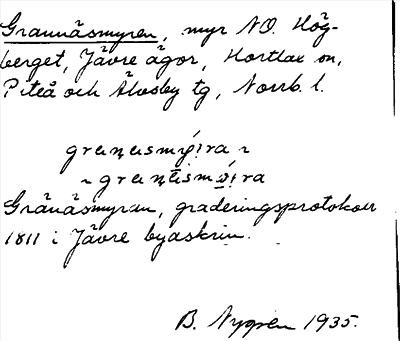 Grannäsmyren, myr NO. Hög-
berget, Jävre ägor, Hortlax sn,
Piteå och Älvsby tg, Norrb. l.
Gränäsmyran, graderingsprotokoll
1811 i Jävre byaskrin.
B. Nygren 1935.